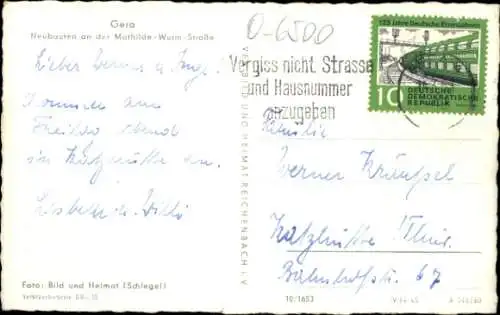 Gera
Neubauten an der Mathilde-Wurm-Straße
Lieber Werner u. Inge!
Kommen am
Freitag abend
in Katzhütte an.
Lisbeth u. Willi
Foto: Bild und Heimat (Schlegel)
VEB BILD UND HEIMAT REICHENBACH I. V.
O-6500
Vergiss nicht Strasse
und Hausnummer
anzugeben
125 Jahre Deutsche Eisenbahnen
10 DEUTSCHE
DEMOKRATISCHE
REPUBLIK
Familie
Werner
Katzhütte Thür.
Bahnhofstr. 67
10/1653